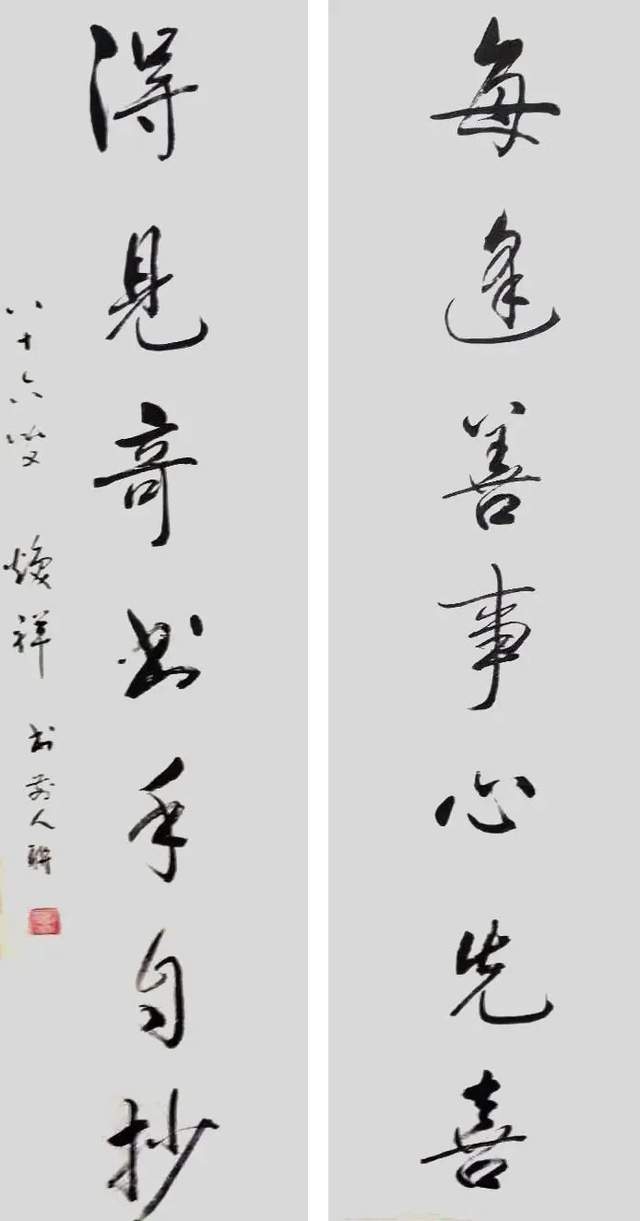 每逢善事心先喜
得見奇书手自抄
八十六叟 焕祥 书前人联